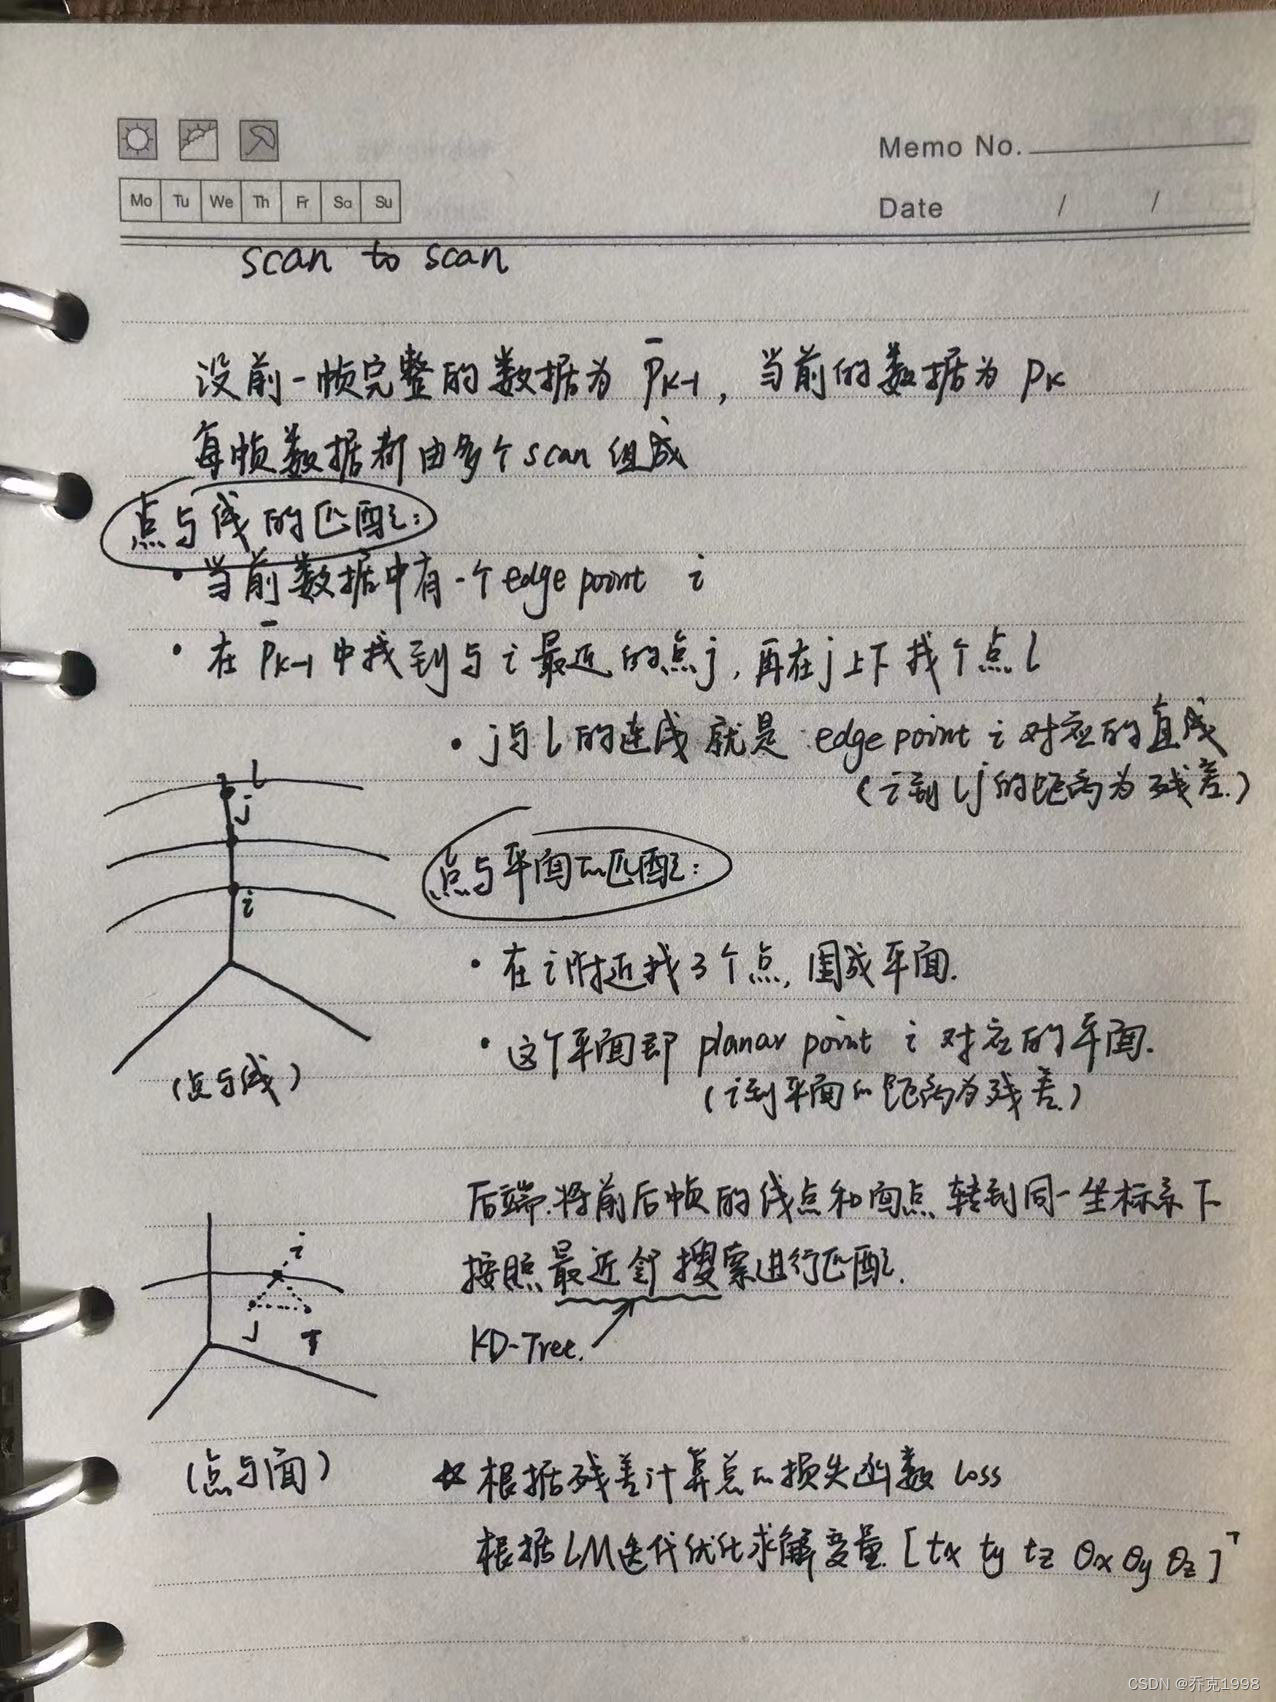 Memo No.
Mo Tu We Th Fr Sa Su
Date / /
scan to scan
设前一帧完整的数据为 P̄k-1, 当前的数据为 Pk
每帧数据都由多个scan组成
点与线的匹配:
• 当前数据中有一个edge point i
• 在 P̄k-1 中找到与 i 最近的点j, 再在j上下找个点 l
• j与l的连线就是 edge point i 对应的直线
(i到lj的距离为残差.)
l
j
i
(点与线)
点与平面的匹配:
• 在i附近找3个点, 围成平面.
• 这个平面即 planar point i 对应的平面.
(i到平面的距离为残差.)
后端.将前后帧的线点和面点转到同一坐标系下
按照最近邻搜索进行匹配.
KD-Tree.
i
J
(点与面)
根据残差计算总的损失函数 Loss
根据LM迭代优化求解变量 [tx ty tz θx θy θz]ᵀ
CSDN @乔克1998